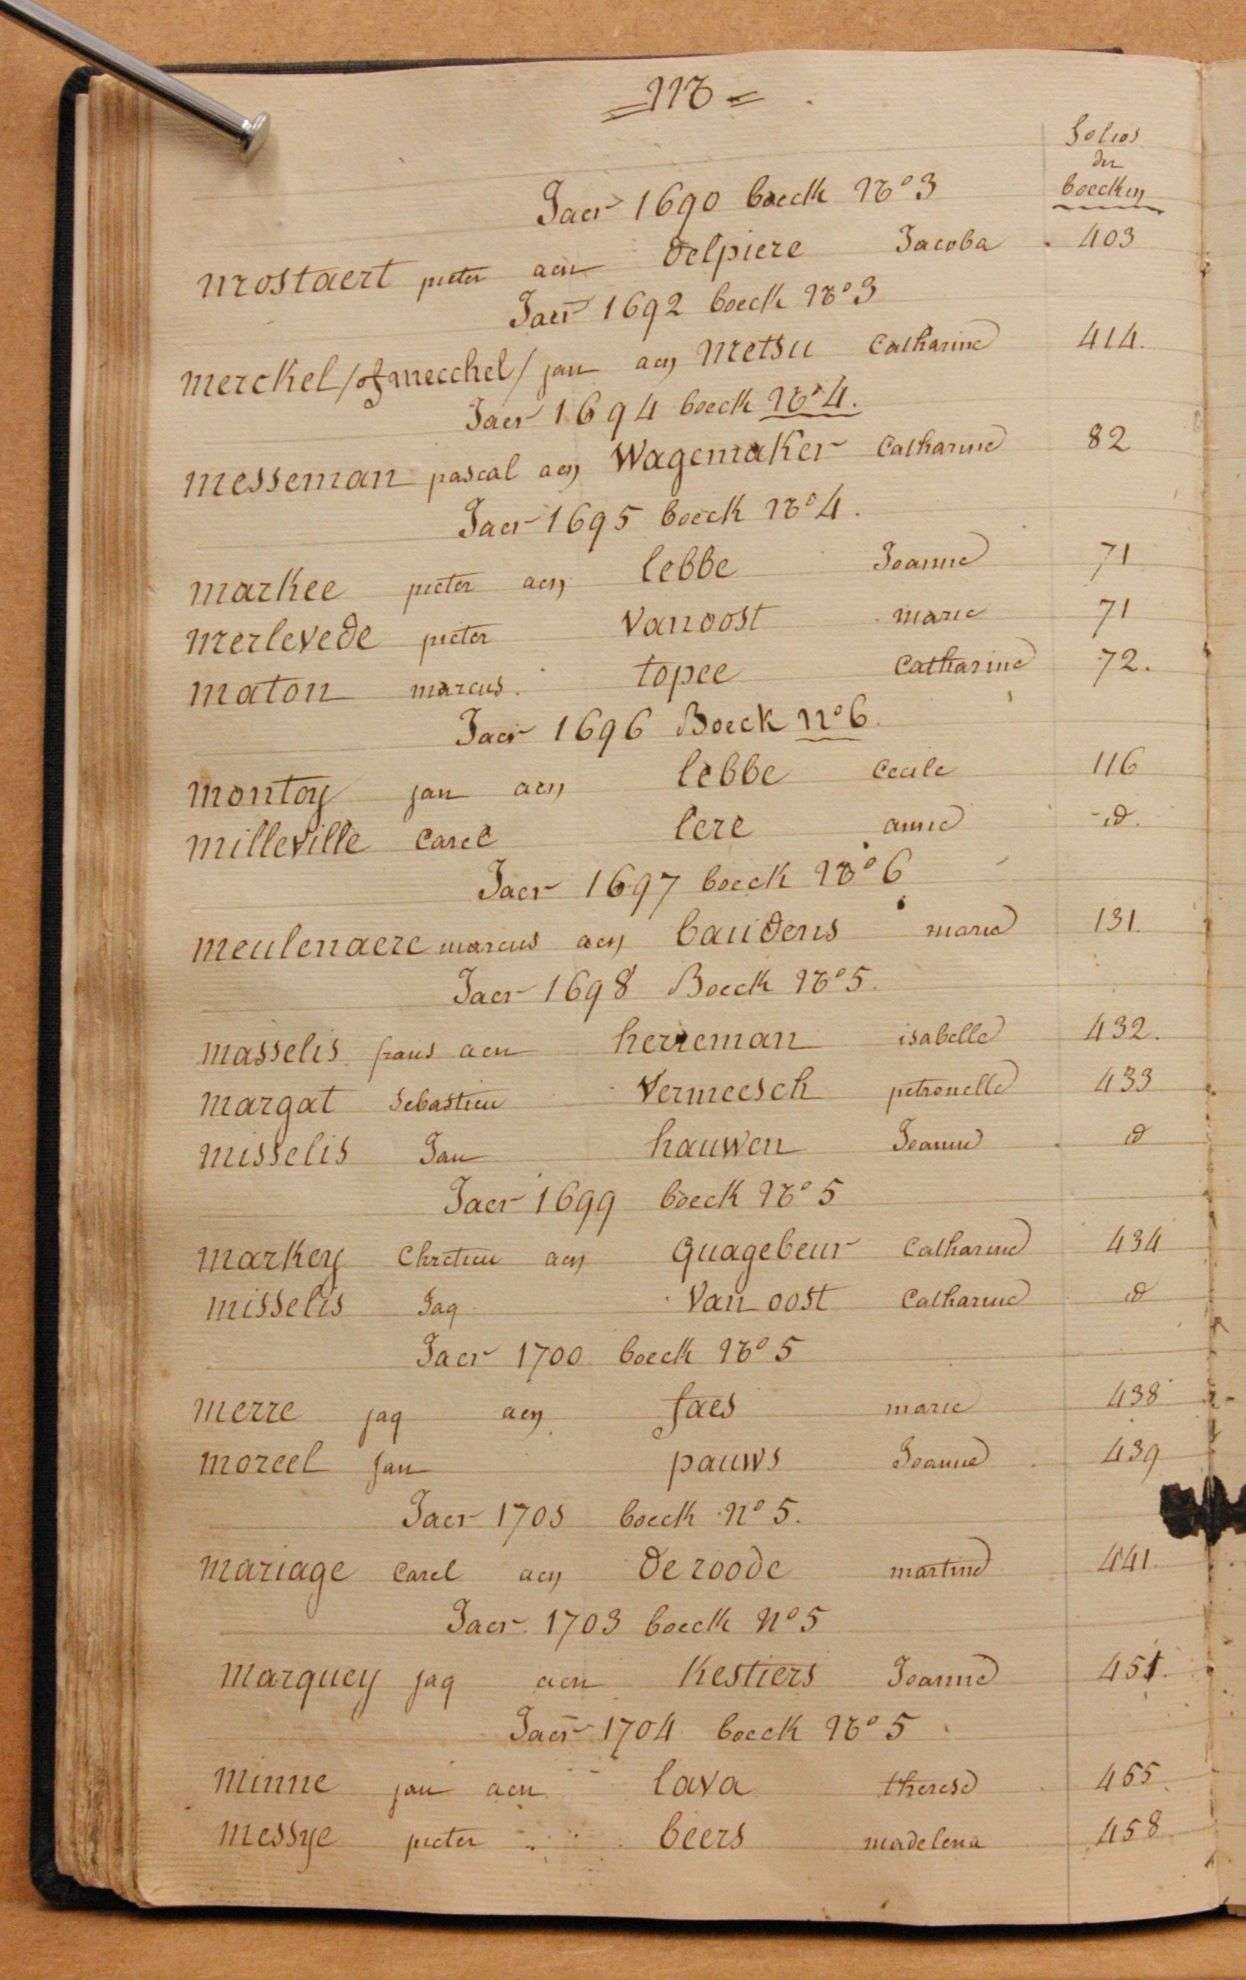 = M =
folios
der
boecken
Jaer 1690 boeck No 3
Mostaert pieter aen delpiere Jacoba 403
Jaer 1692 boeck No 3
merckel / of mecchel / jan aen Metsu Catharine 414.
Jaer 1694 boeck No 4.
messeman pascal aen Wagemaker Catharine 82
Jaer 1695 boeck No 4.
markee pieter aen lebbe Joanne 71
Merlevede pieter Vanoost marie 71
maton marcus. topee Catharine 72.
Jaer 1696 Boeck No 6.
montoy jan aen lebbe Cecile 116
milleville Carel lere anne id.
Jaer 1697 boeck No 6
meulenaere marcus aen baudens marie 131.
Jaer 1698 Boeck No 5.
masselis frans aen herreman isabelle 432.
margat Sebastien Vermeesch petronelle 433
misselis Jan hauwen Joanne id
Jaer 1699 boeck No 5
markey Chretien aen quagebeur Catharine 434
misselis Jaq Van oost Catharine id
Jaer 1700 boeck No 5
merre jaq aen faes marie 438
moreel Jan pauws Joanne 439
Jaer 1703 boeck No 5.
mariage Carel aen De roode martine 441.
Jaer 1703 boeck No 5
marquey jaq aen Kestiers Joanne 451.
Jaer 1704 boeck No 5
minne jan aen lava therese 455.
messye pieter beers madelena 458